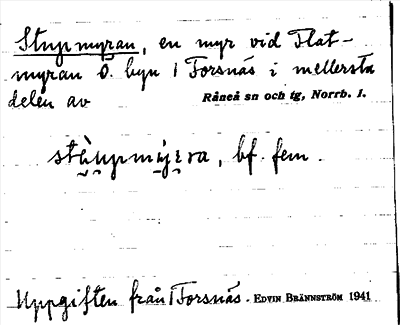 Stupmyran, en myr vid Flat-
myran ö. byn i Forsnäs i mellersta
delen av Råneå sn och tg, Norrb. l.
bf. fem.
Uppgiften från Forsnäs. EDVIN BRÄNNSTRÖM 1941